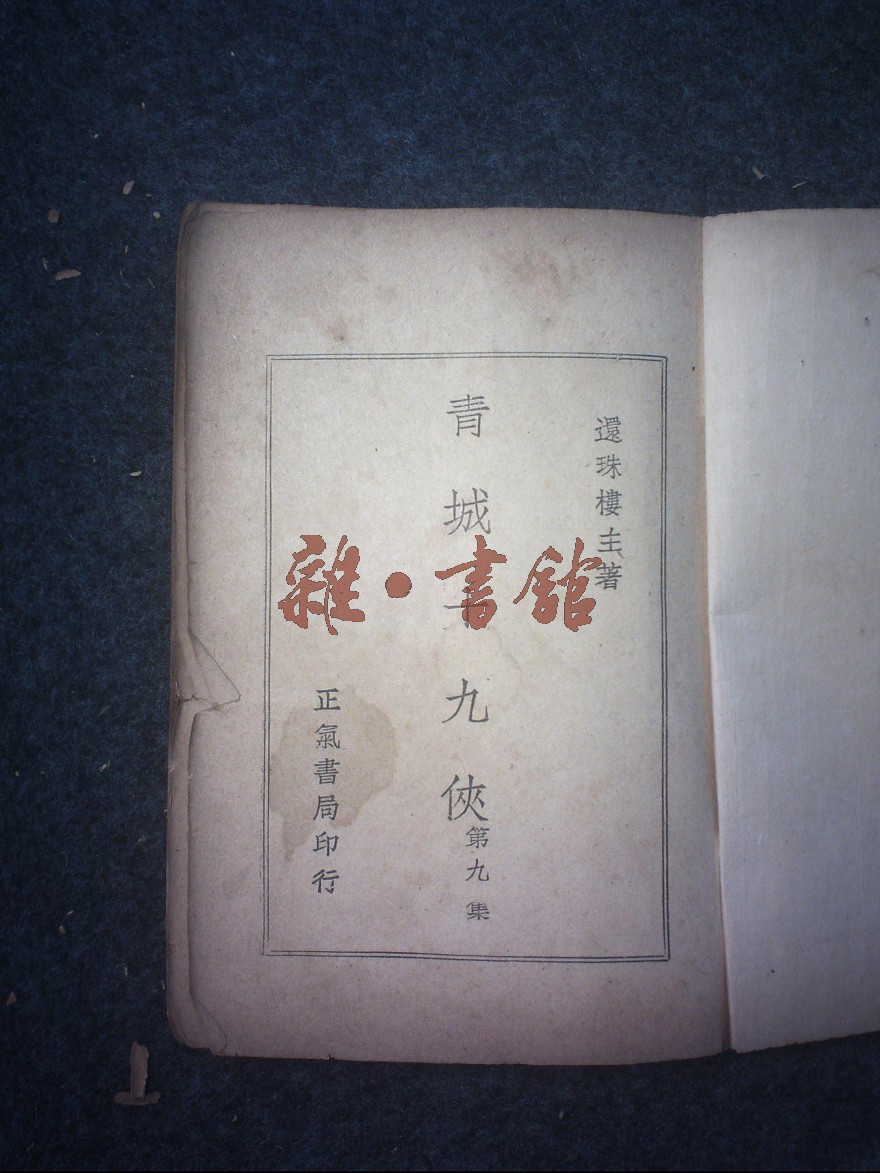 還珠樓主著
青城十九俠
第九集
正氣書局印行
雜·書館